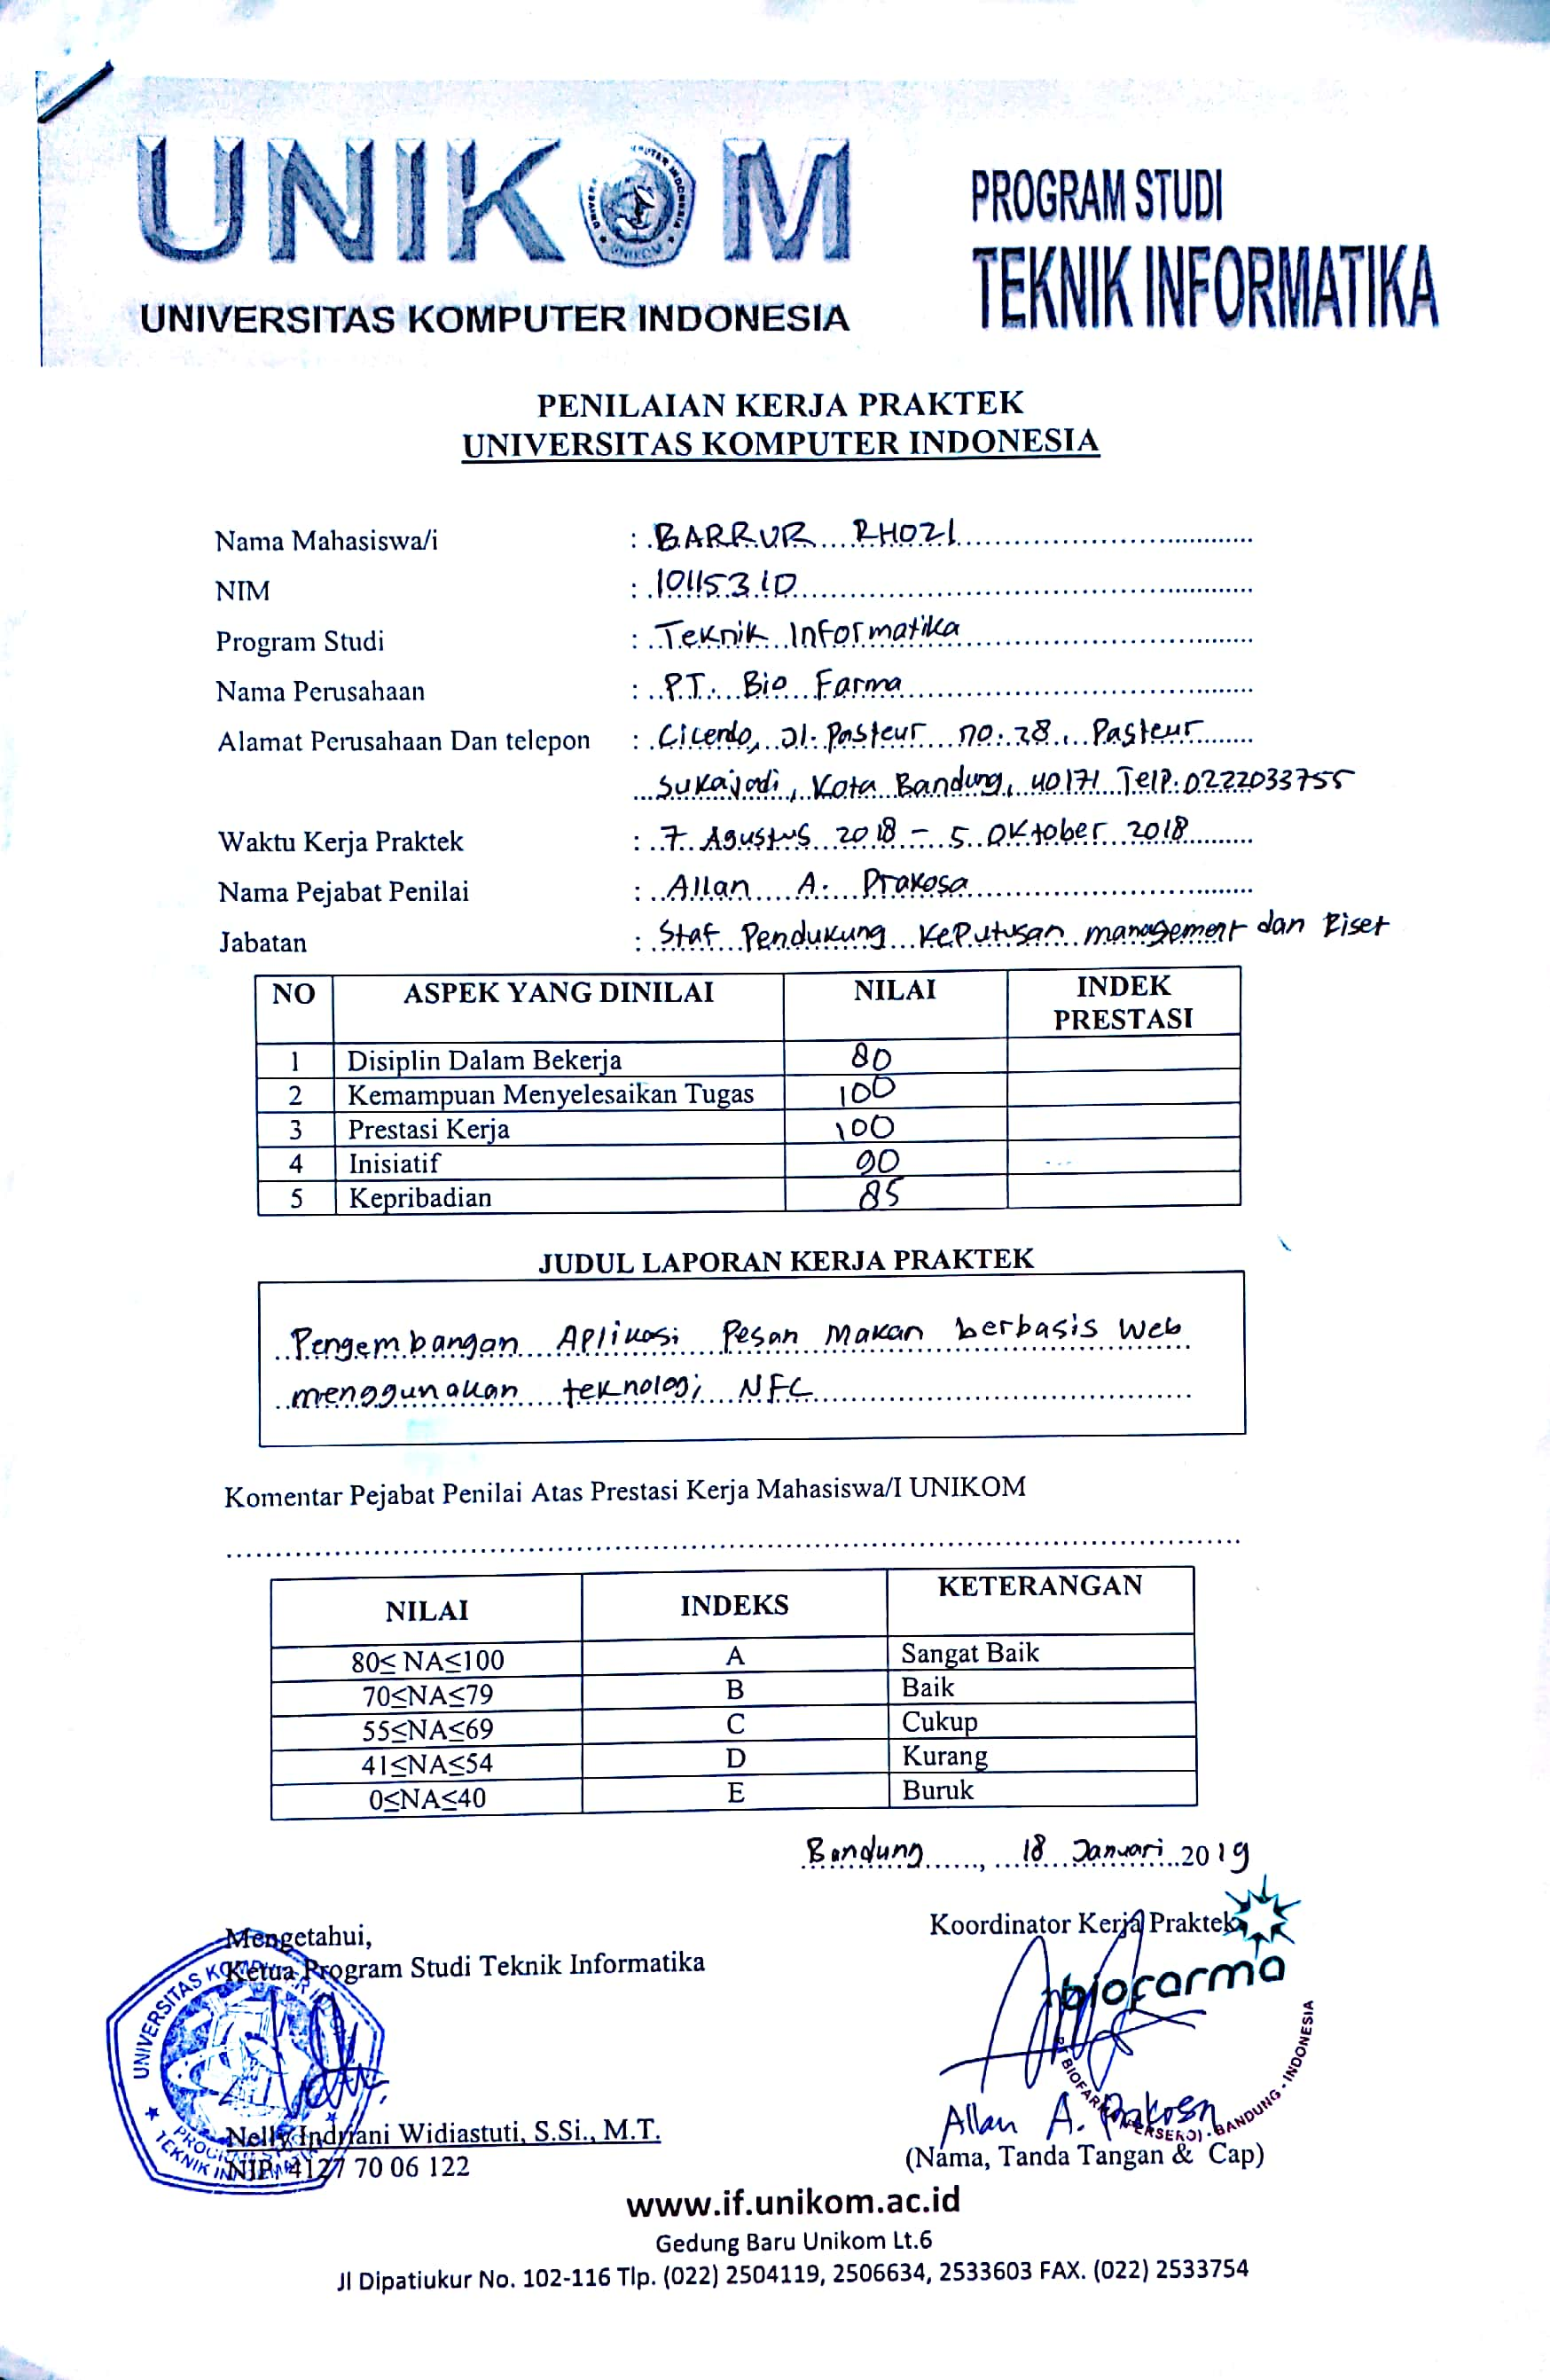 UNIKOM
PROGRAM STUDI
TEKNIK INFORMATIKA
UNIVERSITAS KOMPUTER INDONESIA
PENILAIAN KERJA PRAKTEK
UNIVERSITAS KOMPUTER INDONESIA
Nama Mahasiswa/i : BARRUR RHOZI
NIM : 10115310
Program Studi : Teknik Informatika
Nama Perusahaan : PT. Bio Farma
Alamat Perusahaan Dan telepon : Cicendo, Jl. Pasteur no. 28, Pasteur
Sukajadi, Kota Bandung, 40171 Telp. 0222033755
Waktu Kerja Praktek : 7 Agustus 2018 - 5 Oktober 2018
Nama Pejabat Penilai : Allan A. Prakosa
Jabatan : Staf Pendukung Keputusan management dan Riset
NO ASPEK YANG DINILAI NILAI INDEK PRESTASI
1 Disiplin Dalam Bekerja 80
2 Kemampuan Menyelesaikan Tugas 100
3 Prestasi Kerja 100
4 Inisiatif 90
5 Kepribadian 85
JUDUL LAPORAN KERJA PRAKTEK
Pengembangan Aplikasi Pesan Makan berbasis Web
menggunakan teknologi NFC
Komentar Pejabat Penilai Atas Prestasi Kerja Mahasiswa/I UNIKOM
NILAI INDEKS KETERANGAN
80≤ NA≤100 A Sangat Baik
70≤NA≤79 B Baik
55≤NA≤69 C Cukup
41≤NA≤54 D Kurang
0≤NA≤40 E Buruk
Bandung, 18 Januari 2019
Mengetahui,
Ketua Program Studi Teknik Informatika
Koordinator Kerja Praktek
biofarma
Allan A. Prakosa
Nelly Indriani Widiastuti, S.Si., M.T.
NIP. 4127 70 06 122
(Nama, Tanda Tangan & Cap)
www.if.unikom.ac.id
Gedung Baru Unikom Lt.6
Jl Dipatiukur No. 102-116 Tlp. (022) 2504119, 2506634, 2533603 FAX. (022) 2533754